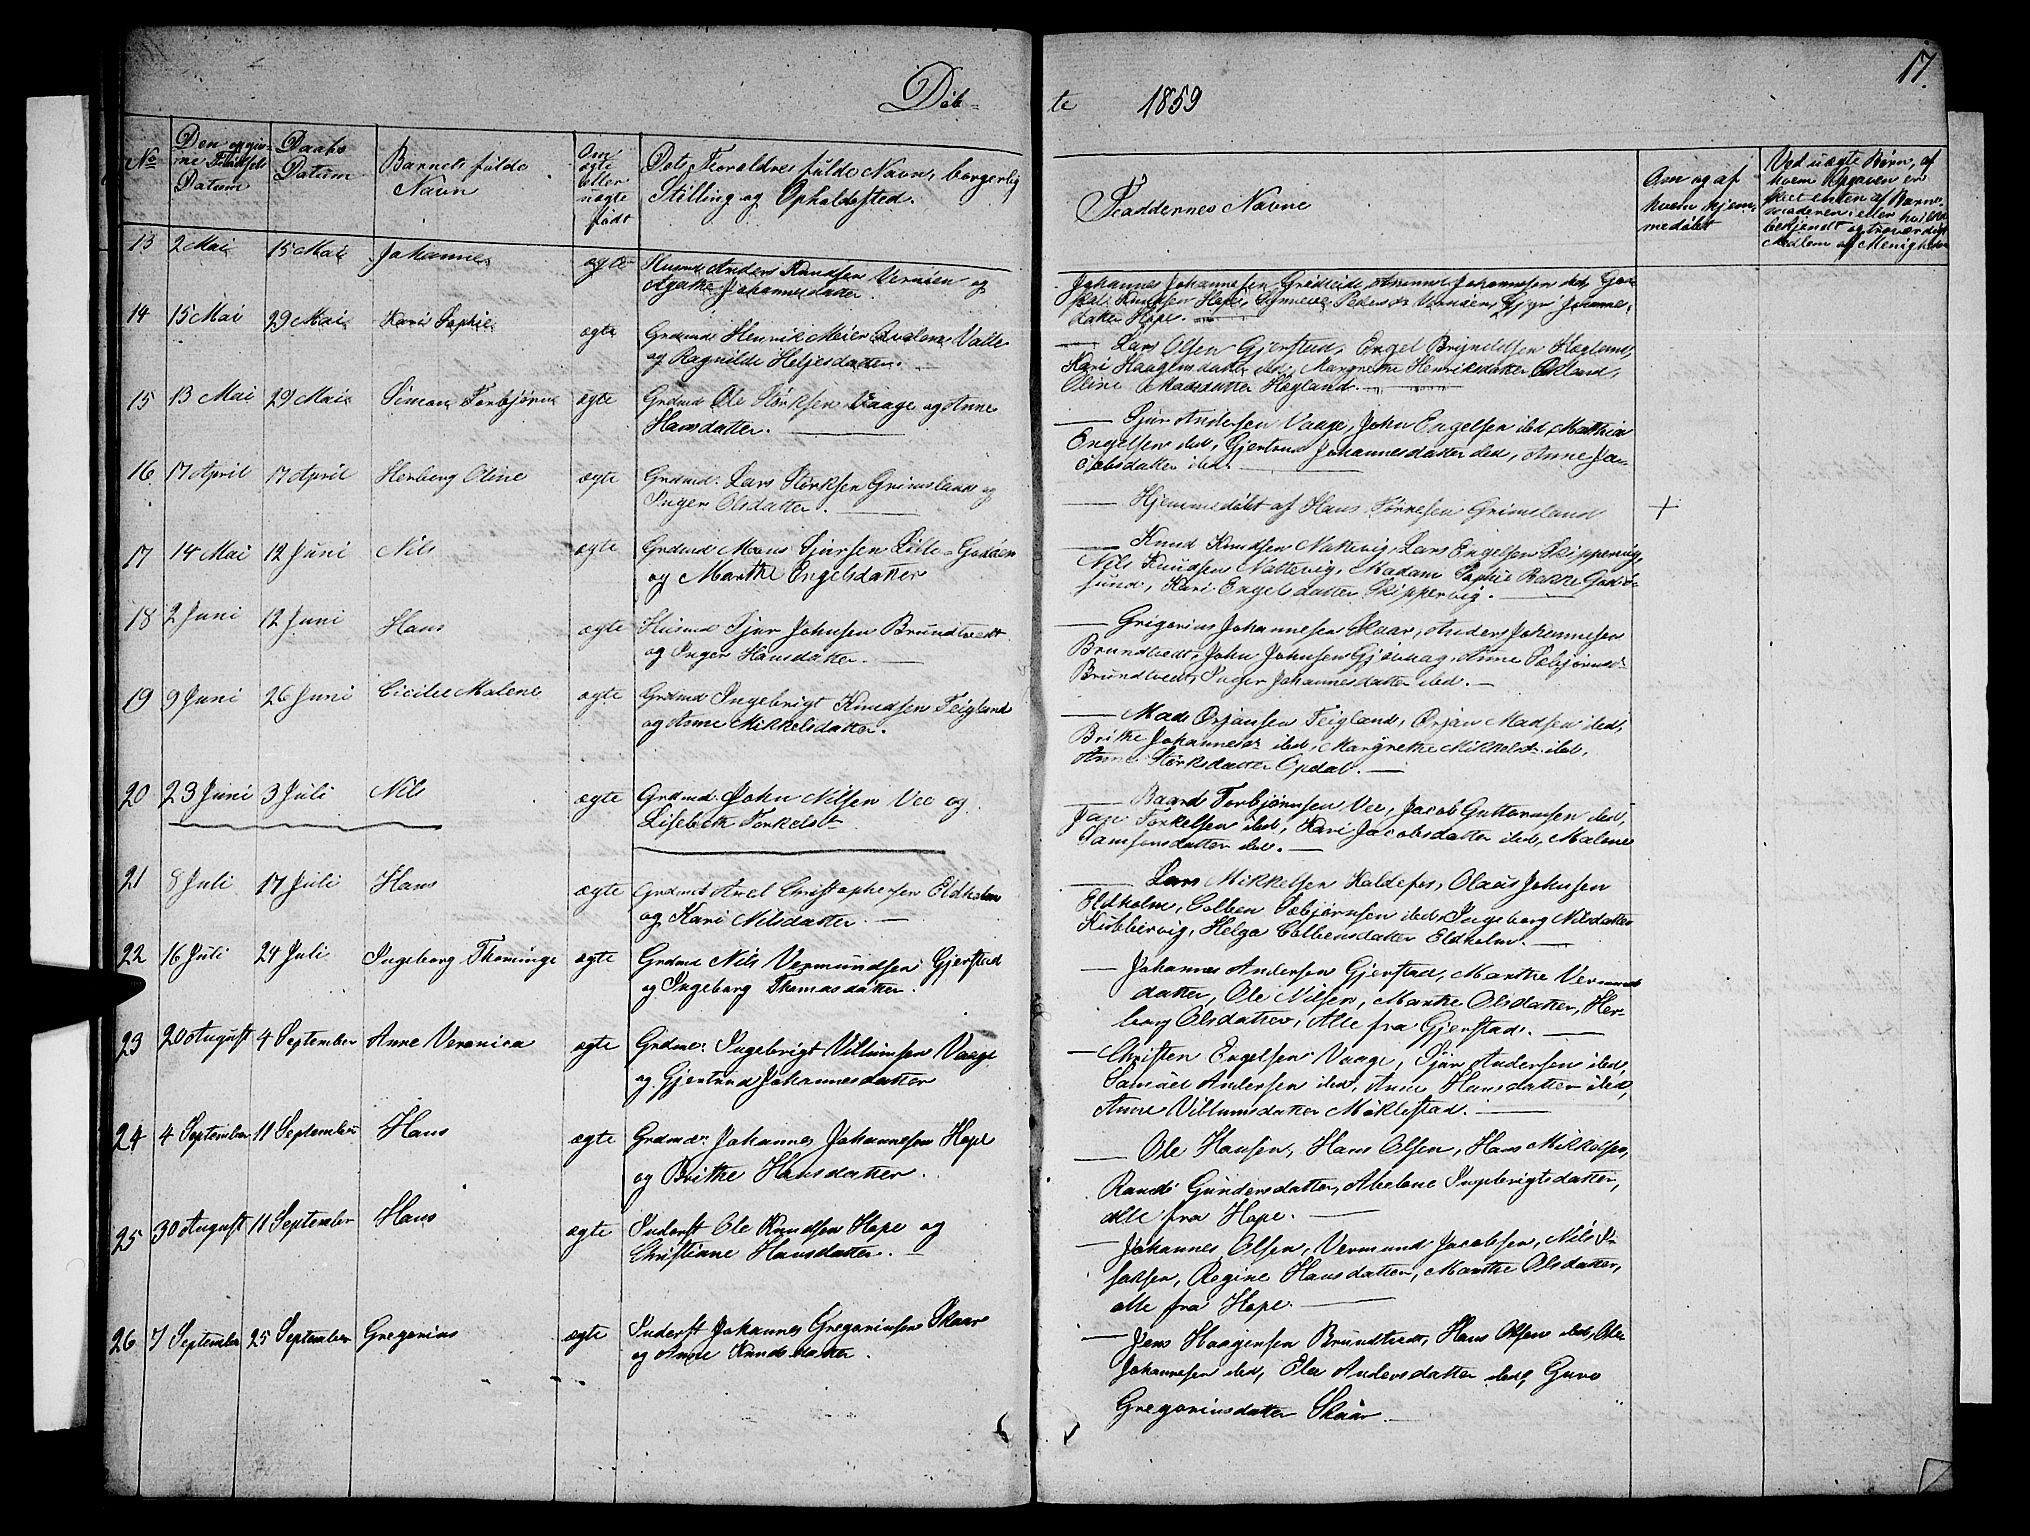 17.
Døb-
te 1859
No
Den opgivne Fødsels Datum
Daabs Datum
Barnets fulde Navn
Om ægte eller uægte født
Dets Forældres fulde Navn, borgerlig Stilling og Opholdssted.
Faddernes Navne
Om og af hvem hjemmedøbt
Ved uægte Børn, af hvem Opgaven er skeet enten af Barnefaderen, eller
13 2 Mai 15 Mai Johannes ægte Husmd Anders Knudsen Vernøen og
Agathe Johannesdatter.
Johannes Johannesen
Knudsen Hope, Synneve
datter Hope.
14 15 Mai 29 Mai Kari Sophie ægte Grdmd Henrik Meier Valle
og Ragnilde Heljesdatter.
Lars Olsen Gjerstad, Engel Brynildsen Høgland,
Kari Haagensdatter ibd, Margrethe Henriksdatter
Oline Madsdatter Høgland.
15 13 Mai 29 Mai Simon Torbjørn ægte Grdmd Ole Størksen Vaage og Anne
Hansdatter.
Sjur Andersen Vaage, John Engelsen ibd, Matthia
Engelsen ibd, Gjertrud Johannesdatter ibd, Anne Ja-
cobsdatter ibd.
16 17 April 17 April Herborg Oline ægte Grdmd. Lars Størksen Grimsland og
Inger Olsdatter.
Hjemmedøbt af Hans Tørresen Grimsland +
17 14 Mai 12 Juni Nils ægte Grdmd Mons Sjursen Lille-Godøen
og Marthe Engelsdatter
Knud Knudsen Nattevig, Lars Engelsen Skippervig,
Nils Knudsen Nattevig, Madam Sophie Godø-
sund, Kari Engelsdatter Skippervig.
18 2 Juni 12 Juni Hans ægte Husmd Sjur Johnsen Brundtvedt
og Inger Hansdatter.
Grigorius Johannesen Skaar, Anders Johannesen
Brundtvedt, John Johnsen Gjøvaag, Anne
Brundtvedt, Inger Johannesdatter ibd.
19 9 Juni 26 Juni Cicilie Malene ægte Grdmd Ingebrigt Knudsen Teigland
og Anne Mikkelsdatter.
Mads Ørjansen Teigland, Ørjan Madsen ibd,
Brithe Johannesdr ibd, Margrethe Mikkelsdr ibd,
Anne Størksdatter Opdal.
20 23 Juni 3 Juli Nils ægte Grdmd. John Nilsen Vee og
Lisebeth Torkelsdr
Baard Torbjørnsen Vee, Jacob Guttormsen ibd,
Torkelsen ibd, Kari Jacobsdatter ibd, Malene
Samsonsdatter ibd.
21 8 Juli 17 Juli Hans ægte Grdmd Axel Christophersen Eldholm
og Kari Nilsdatter.
Lars Mikkelsen Haldefos, Olaus Johnsen
Eldholm, Colben Tobjørnsen ibd, Ingeborg Nilsdatter
Kubbervig, Helga Colbensdatter Eldholm.
22 16 Juli 24 Juli Ingeborg Thominge ægte Grdmd Nils Vermundsen Gjerstad
og Ingeborg Thomasdatter.
Johannes Andersen Gjerstad, Marthe Vermunds
datter, Ole Nilsen, Marthe Olsdatter, Her-
borg Olsdatter, Alle fra Gjerstad.
23 20 August 4 September Anne Veronica ægte Grdmd: Ingebrigt Villumsen Vaage
og Gjertrud Johannesdatter
Christen Engelsen Vaage, Sjur Andersen ibd,
Samuel Andersen ibd, Anne Hansdatter ibd,
Anne Villumsdatter Møklestad.
24 4 September 11 September Hans ægte Grdmd: Johannes Johannesen Hope
og Brithe Hansdatter.
Ole Hansen, Hans Olsen, Hans Mikkelsen,
Randi Gundersdatter, Abelone Ingebrigtsdatter,
alle fra Hope.
25 30 August 11 September Hans ægte Inderst Ole Knudsen Hope og
Christiane Hansdatter.
Johannes Olsen, Vermund Jacobsen, Nils I-
saksen, Regine Hansdatter, Marthe Olsdatter,
alle fra Hope.
26 7 September 25 September Gregorius ægte Inderst Johannes Gregoriusen Skaar
og Anne Knudsdatter.
Jens Haagensen Brundtvedt, Hans Olsen ibd, Ole
Johannesen ibd, Eli Andersdatter ibd, Guro
Gregoriusdatter Skaar.